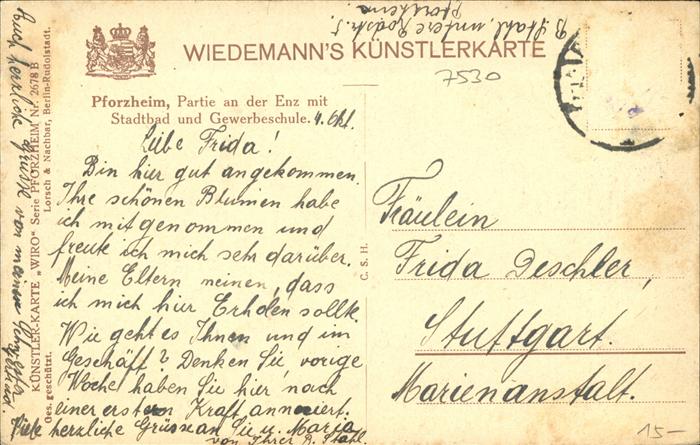 B. Stahl, untere Rodstr. 5.
Pforzheim
WIEDEMANN'S KÜNSTLERKARTE
7530
Pforzheim, Partie an der Enz mit
Stadtbad und Gewerbeschule. 4. Okt.
Liebe Frida!
Bin hier gut angekommen.
Ihre schönen Blumen habe
ich mitgenommen und
freute ich mich sehr darüber.
Meine Eltern meinen, dass
ich mich hier Erholen sollte.
Wie geht es Ihnen und im
Geschäft? Denken Sie, vorige
Woche haben Sie hier nach
einer ersten Kraft annonciert.
Viele herzliche Grüsse an Sie u. Maria
von Ihrer B. Stahl.
Auch herzliche Grüsse von meinen
KÜNSTLER-KARTE „WIRO“ Serie PFORZHEIM Nr. 2678 B
Ges. geschützt. Lorsch & Nachbar, Berlin-Rudolstadt.
C. S. H.
Fräulein
Frida Deschler,
Stuttgart.
Marienanstalt.
15-